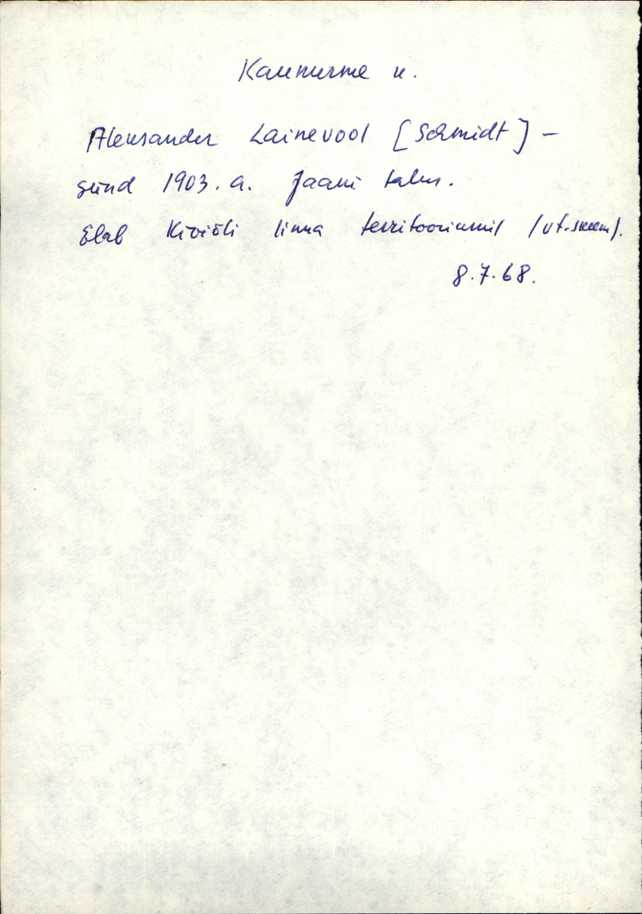 Kaunurme k.
Aleksander Lainevool [Schmidt] –
sünd 1903. a. Jaani talus.
Elab Kiviõli linna territooriumil (vt.
8.7.68.